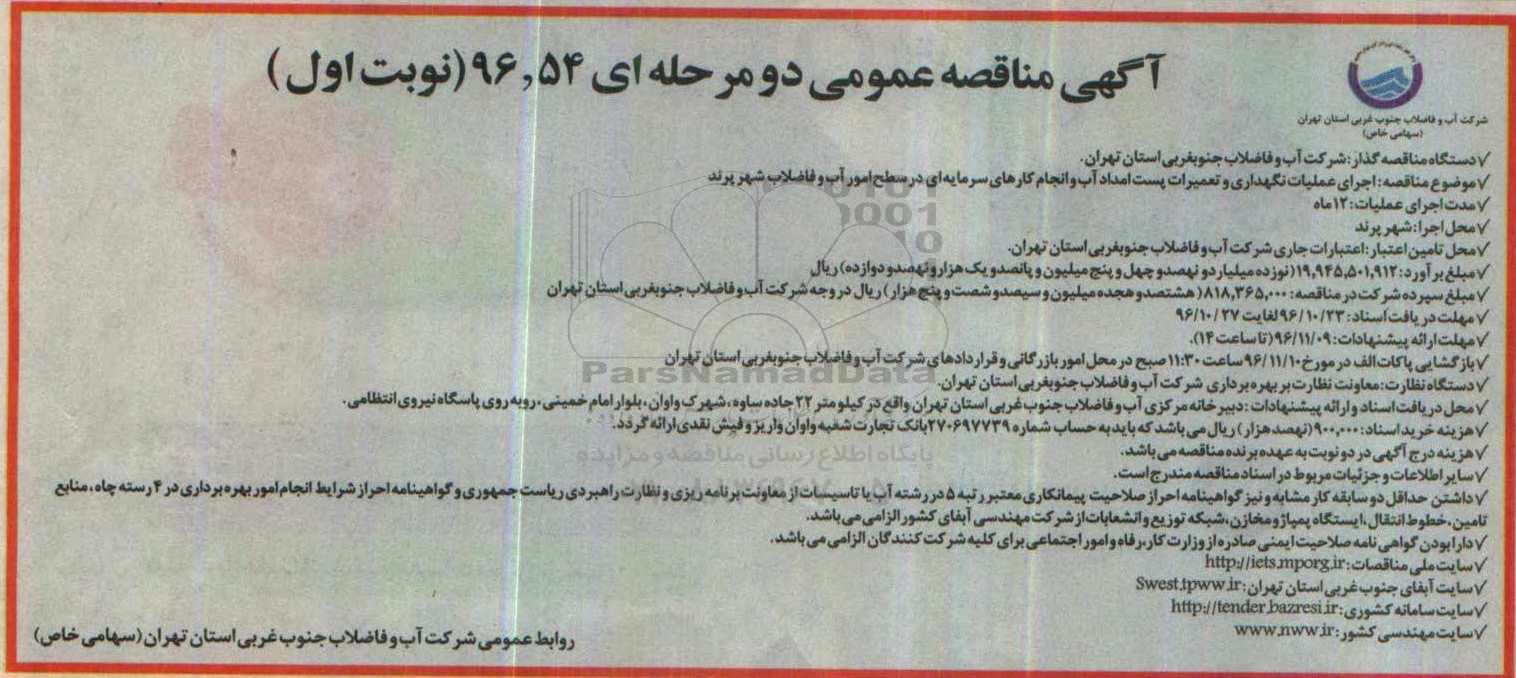 آگهی مناقصه عمومی دو مرحله ای ۹۶,۵۴ (نوبت اول)
شرکت آب و فاضلاب جنوب غربی استان تهران
(سهامی خاص)
√ دستگاه مناقصه گذار: شرکت آب و فاضلاب جنوبغربی استان تهران.
√ موضوع مناقصه: اجرای عملیات نگهداری و تعمیرات پست امداد آب و انجام کارهای سرمایه‌ای در سطح امور آب و فاضلاب شهر پرند
√ مدت اجرای عملیات: ۱۲ ماه
√ محل اجرا: شهر پرند
√ محل تامین اعتبار: اعتبارات جاری شرکت آب و فاضلاب جنوبغربی استان تهران.
√ مبلغ برآورد: ۱۹,۹۴۵,۵۰۱,۹۱۲ (نوزده میلیارد و نهصد و چهل و پنج میلیون و پانصد و یک هزار و نهصد و دوازده) ریال
√ مبلغ سپرده شرکت در مناقصه: ۸۱۸,۳۶۵,۰۰۰ (هشتصد و هجده میلیون و سیصد و شصت و پنج هزار) ریال در وجه شرکت آب و فاضلاب جنوبغربی استان تهران
√ مهلت دریافت اسناد: ۹۶/۱۰/۲۳ لغایت ۹۶/۱۰/۲۷
√ مهلت ارائه پیشنهادات: ۹۶/۱۱/۰۹ (تا ساعت ۱۴).
√ بازگشایی پاکات الف در مورخ ۹۶/۱۱/۱۰ ساعت ۱۱:۳۰ صبح در محل امور بازرگانی و قراردادهای شرکت آب و فاضلاب جنوبغربی استان تهران
√ دستگاه نظارت: معاونت نظارت بر بهره برداری شرکت آب و فاضلاب جنوبغربی استان تهران.
√ محل دریافت اسناد و ارائه پیشنهادات: دبیرخانه مرکزی آب و فاضلاب جنوب غربی استان تهران واقع در کیلومتر ۲۲ جاده ساوه، شهرک واوان، بلوار امام خمینی، روبه روی پاسگاه نیروی انتظامی.
√ هزینه خرید اسناد: ۹۰۰,۰۰۰ (نهصد هزار) ریال می باشد که باید به حساب شماره ۲۷۰۶۹۷۷۳۹ بانک تجارت شعبه واوان واریز و فیش نقدی ارائه گردد.
√ هزینه درج آگهی در دو نوبت به عهده برنده مناقصه می باشد.
√ سایر اطلاعات و جزئیات مربوط در اسناد مناقصه مندرج است.
√ داشتن حداقل دو سابقه کار مشابه و نیز گواهینامه احراز صلاحیت پیمانکاری معتبر رتبه ۵ در رشته آب یا تاسیسات از معاونت برنامه ریزی و نظارت راهبردی ریاست جمهوری و گواهینامه احراز شرایط انجام امور بهره برداری در ۴ رسته چاه، منابع
تامین، خطوط انتقال، ایستگاه پمپاژ و مخازن، شبکه توزیع و انشعابات از شرکت مهندسی آبفای کشور الزامی می باشد.
√ دارا بودن گواهی نامه صلاحیت ایمنی صادره از وزارت کار، رفاه و امور اجتماعی برای کلیه شرکت کنندگان الزامی می باشد.
√ سایت ملی مناقصات: http://iets.mporg.ir
√ سایت آبفای جنوب غربی استان تهران: Swest.tpww.ir
√ سایت سامانه کشوری: http://tender.bazresi.ir
√ سایت مهندسی کشور: www.nww.ir
روابط عمومی شرکت آب و فاضلاب جنوب غربی استان تهران (سهامی خاص)
ParsNamadData
پایگاه اطلاع رسانی مناقصه و مزایده